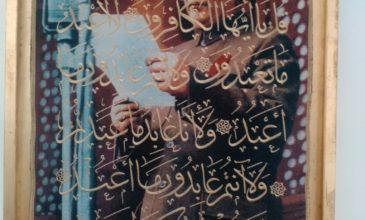 قل يا أيها الكافرون لا أعبد
ما تعبدون ولا أنتم عابدون
ما أعبد ولا أنا عابد ما عبدتم
ولا أنتم عابدون ما أعبد